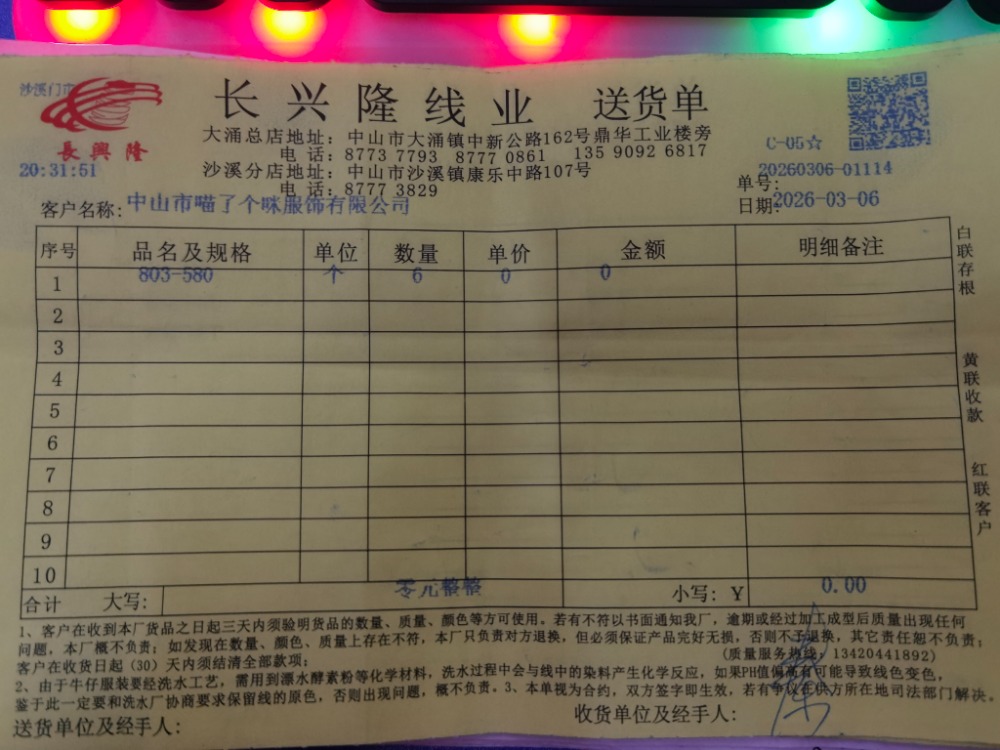 沙溪门市
長興隆
20:31:51
长兴隆线业 送货单
大涌总店地址：中山市大涌镇中新公路162号鼎华工业楼旁
电 话：8773 7793 8777 0861 135 9092 6817
沙溪分店地址：中山市沙溪镇康乐中路107号
电 话：8777 3829
C-05☆
单号：20260306-01114
日期：2026-03-06
客户名称：中山市喵了个咪服饰有限公司
序号 品名及规格 单位 数量 单价 金额 明细备注
1 803-580 个 6 0 0
2
3
4
5
6
7
8
9
10
合计 大写： 零元整整 小写：Y 0.00
白联存根
黄联收款
红联客户
1、客户在收到本厂货品之日起三天内须验明货品的数量、质量、颜色等方可使用。若有不符以书面通知我厂，逾期或经过加工成型后质量出现任何
问题，本厂概不负责；如发现在数量、颜色、质量上存在不符，本厂只负责对方退换，但必须保证产品完好无损，否则不予退换，其它责任恕不负责；
客户在收货日起（30）天内须结清全部款项； （质量服务热线：13420441892）
2、由于牛仔服装要经洗水工艺，需用到漂水酵素粉等化学材料，洗水过程中会与线中的染料产生化学反应，如果PH值偏高有可能导致线色变色，
鉴于此一定要和洗水厂协商要求保留线的原色，否则出现问题，概不负责。3、本单视为合约，双方签字即生效，若有争议在供方所在地司法部门解决。
送货单位及经手人： 收货单位及经手人：